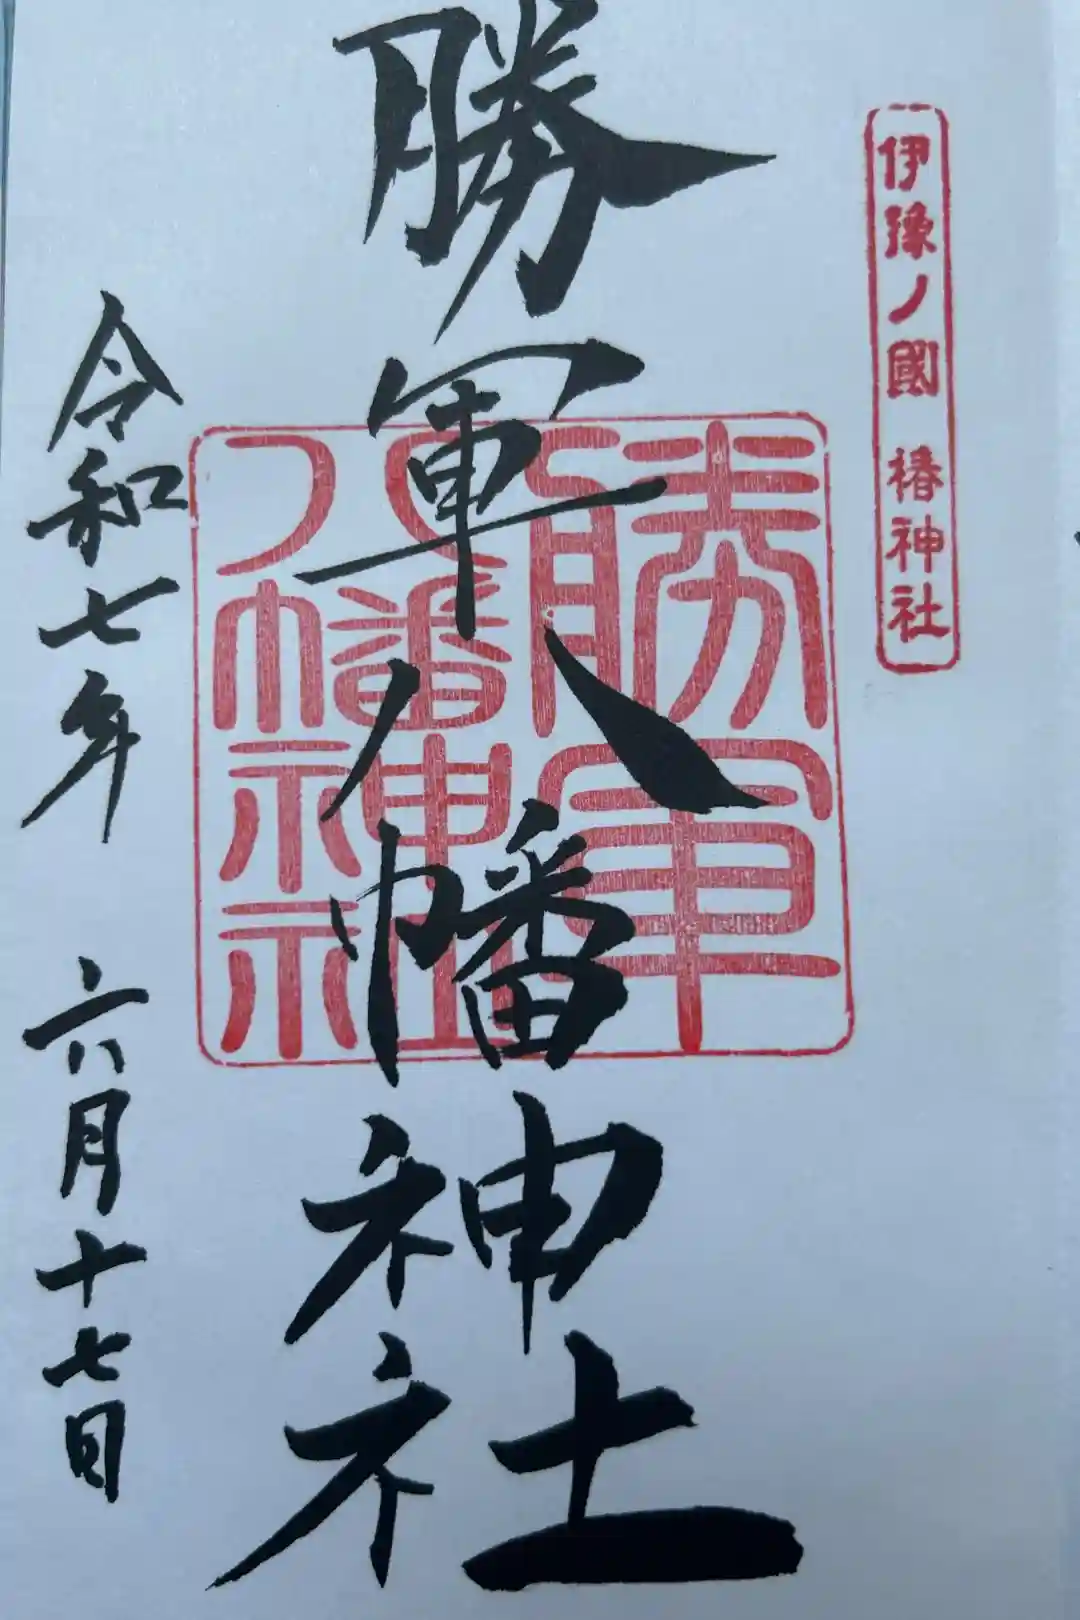 伊豫ノ國 椿神社
勝軍八幡神社
勝軍
八幡神社
令和七年 六月十七日